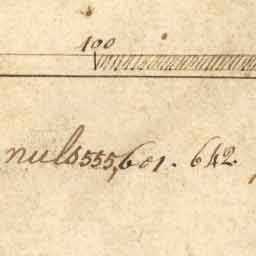 100
nuls 555,601. 642.